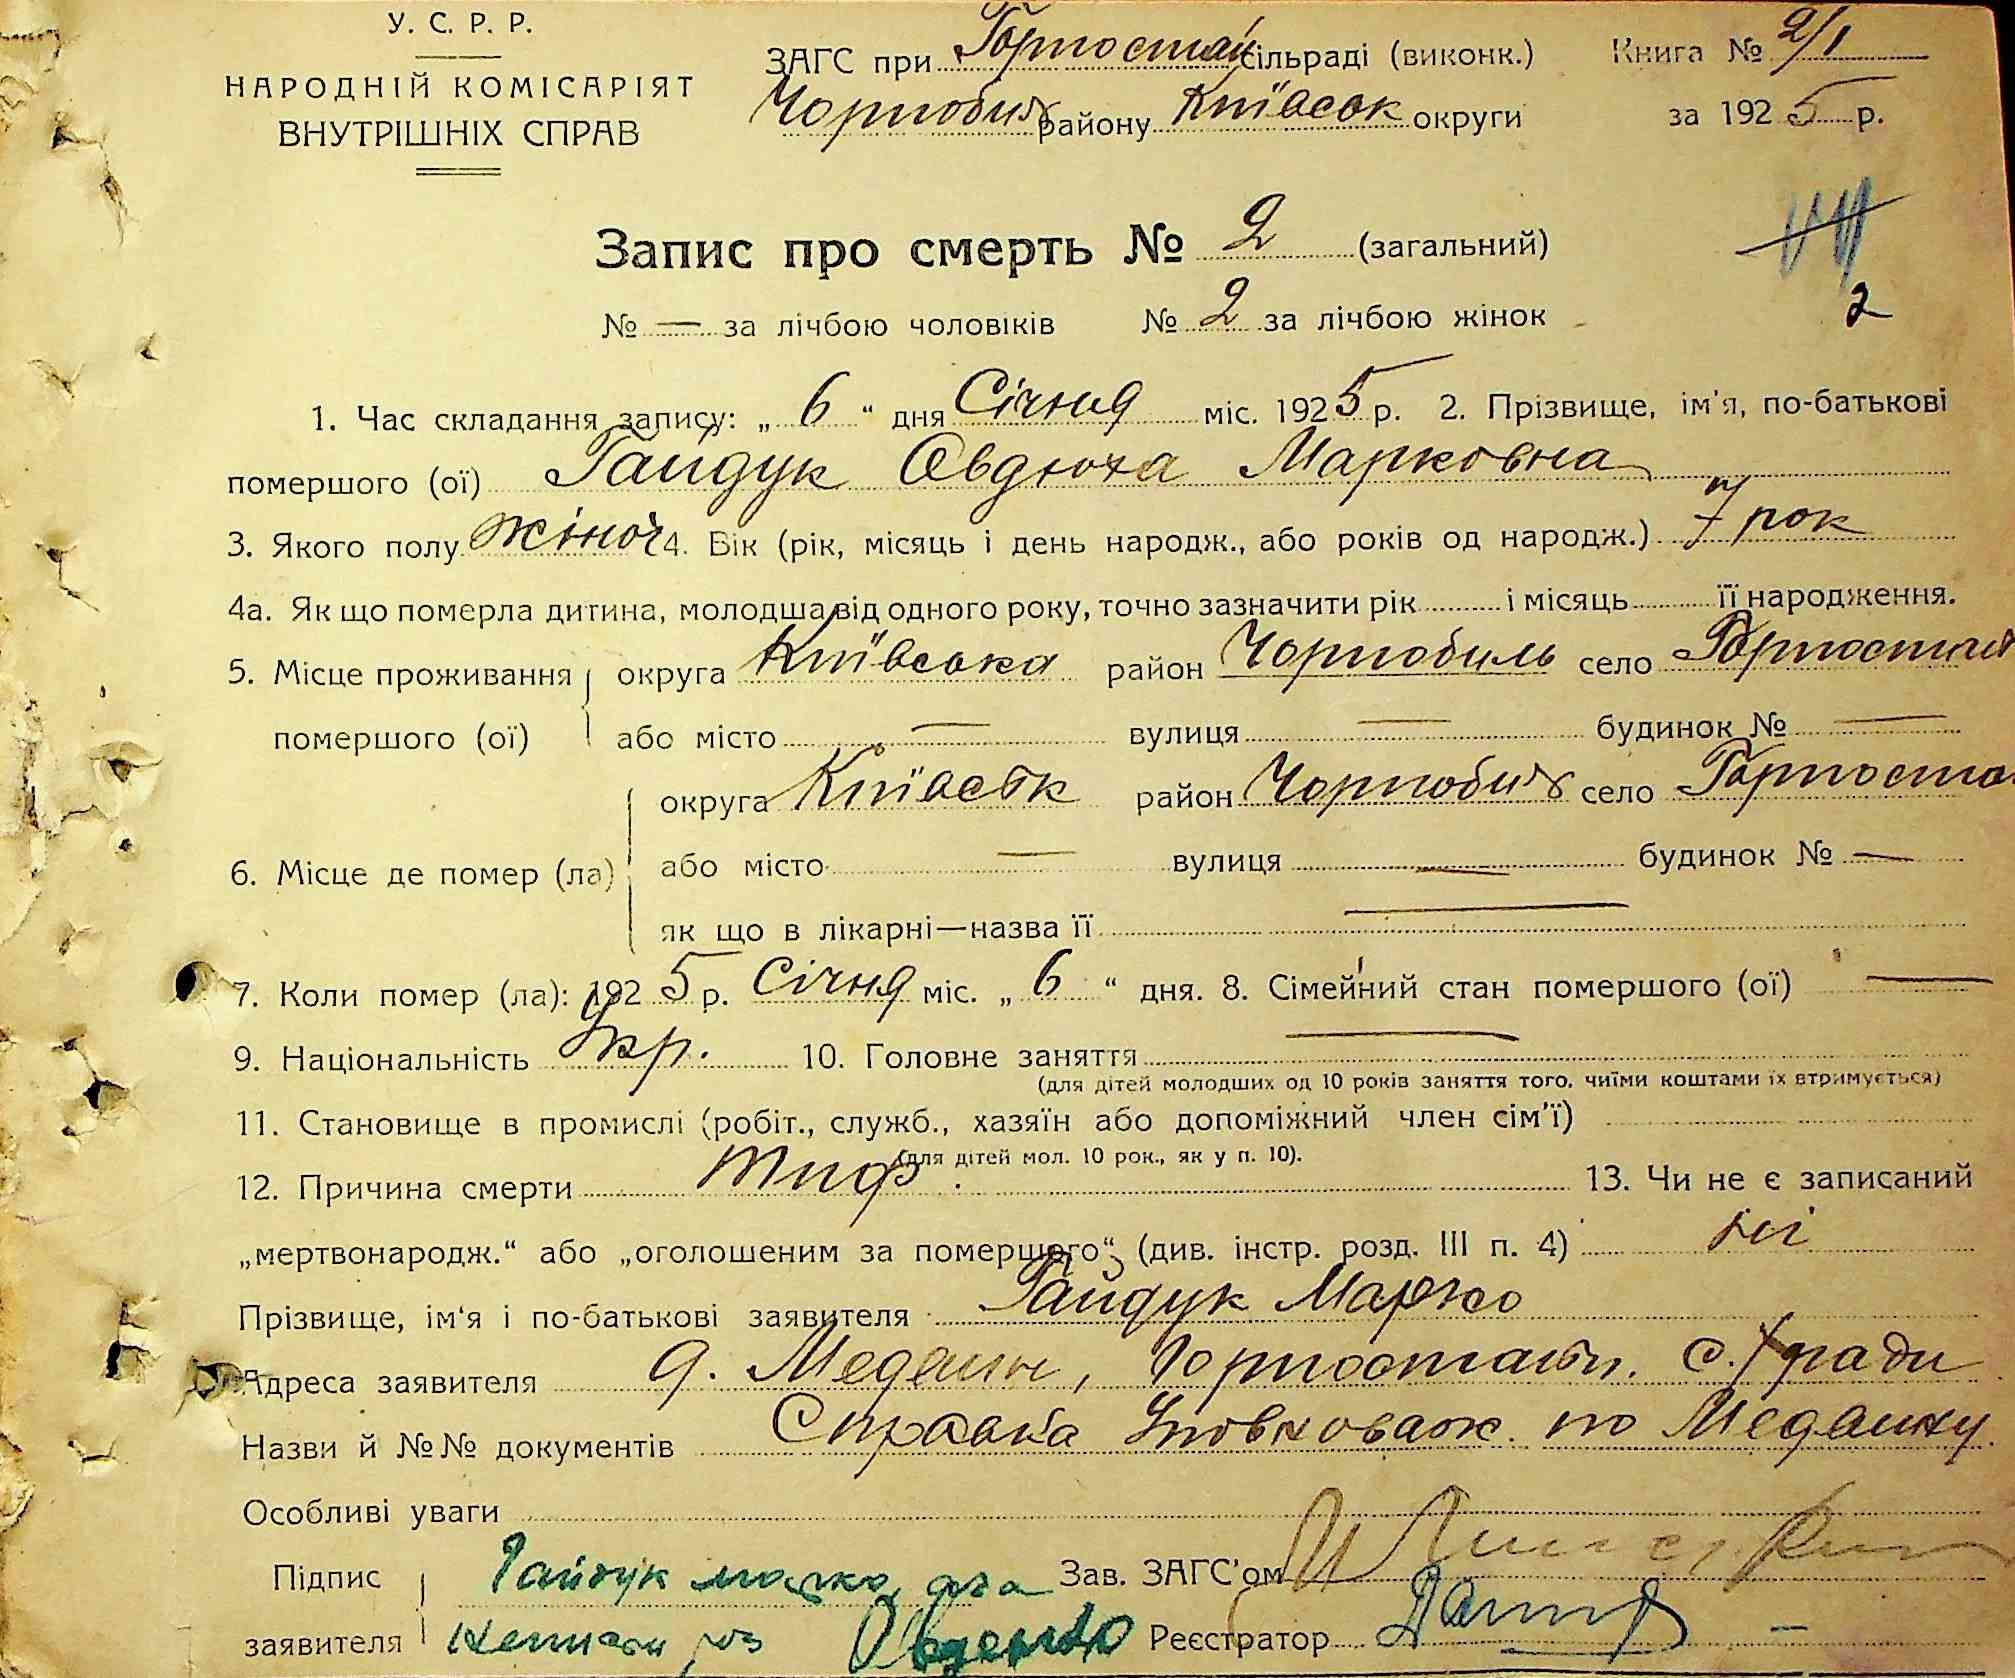 У. С. Р. Р.
НАРОДНІЙ КОМІСАРІЯТ
ВНУТРІШНІХ СПРАВ
ЗАГС при Горностай сільраді (виконк.)
Чорнобил району Київськ округи
Книга № 2/1
за 1925 р.
Запис про смерть № 2 (загальний)
№ — за лічбою чоловіків № 2 за лічбою жінок
2
1. Час складання запису: „ 6 “ дня Січня міс. 1925 р. 2. Прізвище, ім'я, по-батькові
помершого (ої) Гайдук Овдюха Марковна
3. Якого полу жіноч 4. Вік (рік, місяць і день народж., або років од народж.) 7 рок
4а. Як що померла дитина, молодша від одного року, точно зазначити рік і місяць її народження.
5. Місце проживання округа Київська район Чорнобиль село Горностай
помершого (ої) або місто — вулиця — будинок № —
округа Київськ район Чорнобил село Горноста
6. Місце де помер (ла) або місто — вулиця — будинок № —
як що в лікарні—назва її —
7. Коли помер (ла): 1925 р. Січня міс. „ 6 “ дня. 8. Сімейний стан помершого (ої) —
9. Національність Укр. 10. Головне заняття —
(для дітей молодших од 10 років заняття того, чиїми коштами їх втримується)
11. Становище в промислі (робіт., служб., хазяїн або допоміжний член сім'ї)
(для дітей мол. 10 рок., як у п. 10).
12. Причина смерти тиф. 13. Чи не є записаний
„мертвонародж.“ або „оголошеним за помершого“ (див. інстр. розд. III п. 4) ні
Прізвище, ім'я і по-батькові заявителя Гайдук Марко
Адреса заявителя д. Медвин, Горностайп. с. ради
Назви й №№ документів Справка Уповноваж. по Медвину
Особливі уваги
Підпис Гайдук марко, а за Зав. ЗАГС'ом
заявителя Реєстратор